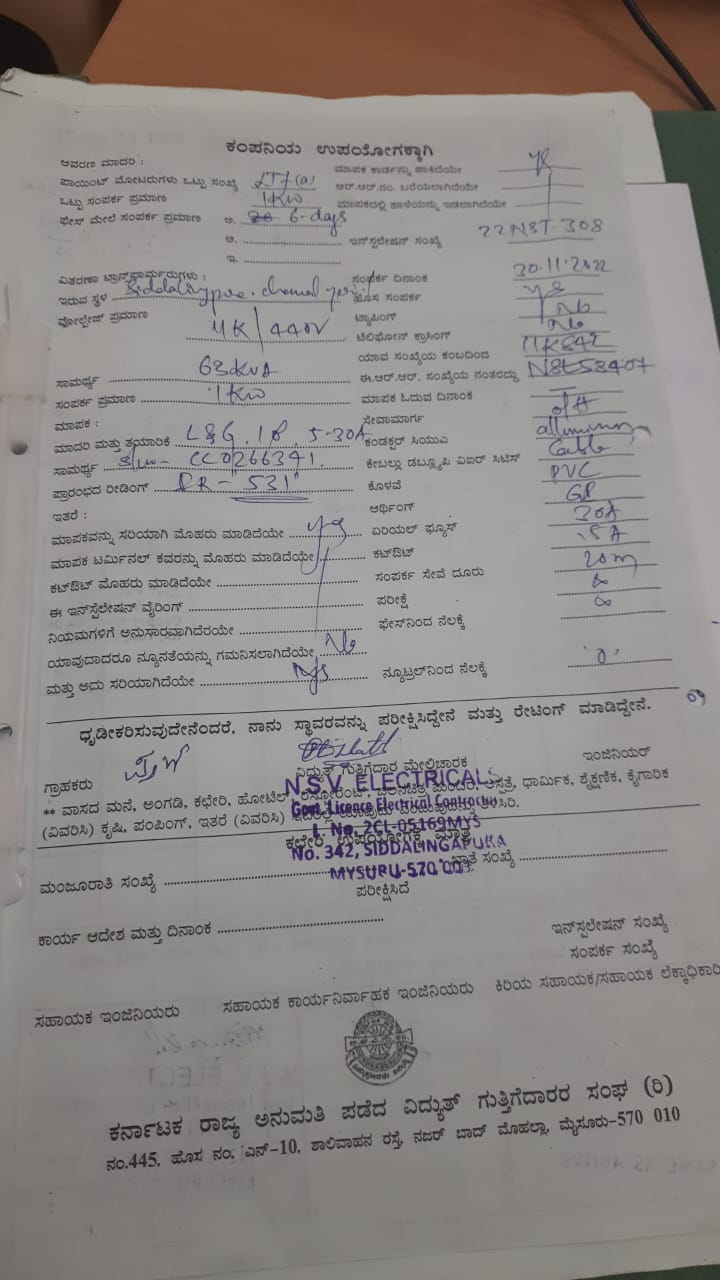 ಕಂಪನಿಯ ಉಪಯೋಗಕ್ಕಾಗಿ
ಆವರಣ ಮಾದರಿ : ಮಾಪಕ ಕಾರ್ಡನ್ನು ಹಾಕಿದೆಯೇ
ಪಾಯಿಂಟ್ ಮೋಟರುಗಳು ಒಟ್ಟು ಸಂಖ್ಯೆ LT7(a) ಆರ್.ಆರ್.ನಂ. ಬರೆಯಲಾಗಿದೆಯೇ
ಒಟ್ಟು ಸಂಪರ್ಕ ಪ್ರಮಾಣ 1KW ಮಾಪಕದಲ್ಲಿ ಹಾಳೆಯನ್ನು ಇಡಲಾಗಿದೆಯೇ
ಫೇಸ್ ಮೇಲೆ ಸಂಪರ್ಕ ಪ್ರಮಾಣ ಅ. 6-days
ಆ. ಇನ್‌ಸ್ಟಲೇಷನ್ ಸಂಖ್ಯೆ 22NST.308
ಇ.
ವಿತರಣಾ ಟ್ರಾನ್ಸ್‌ಫಾರ್ಮರುಗಳು : ಸಂಪರ್ಕ ದಿನಾಂಕ 30.11.2022
ಇರುವ ಸ್ಥಳ ಹೊಸ ಸಂಪರ್ಕ yes
ವೋಲ್ಟೇಜ್ ಪ್ರಮಾಣ 11K/440V ಟ್ಯಾಪಿಂಗ್ No
ಟೆಲಿಫೋನ್ ಕ್ರಾಸಿಂಗ್ No
ಯಾವ ಸಂಖ್ಯೆಯ ಕಂಬದಿಂದ
ಸಾಮರ್ಥ್ಯ 63KVA ಈ.ಆರ್.ಆರ್. ಸಂಖ್ಯೆಯ ನಂತರದ್ದು
ಸಂಪರ್ಕ ಪ್ರಮಾಣ 1KW ಮಾಪಕ ಓದುವ ದಿನಾಂಕ
ಮಾಪಕ : ಸೇವಾಮಾರ್ಗ o/H
ಮಾದರಿ ಮತ್ತು ತಯಾರಿಕೆ L&G, 1Ø, 5-30A ಕಂಡಕ್ಟರ್ ಸಿಯುಎ
ಸಾಮರ್ಥ್ಯ CC0266341 ಕೇಬಲ್ಲು ಡಬ್ಲ್ಯೂಪಿ ವಿಐಆರ್ ಸಿಟಿಸ್ Cable
ಪ್ರಾರಂಭದ ರೀಡಿಂಗ್ "531" ಕೊಳವೆ PVC
ಇತರೆ : ಅರ್ಥಿಂಗ್ GP
ಮಾಪಕವನ್ನು ಸರಿಯಾಗಿ ಮೊಹರು ಮಾಡಿದೆಯೇ yes ಏರಿಯಲ್ ಫ್ಯೂಸ್ 30A
ಮಾಪಕ ಟರ್ಮಿನಲ್ ಕವರನ್ನು ಮೊಹರು ಮಾಡಿದೆಯೇ ಕಟ್‌ಔಟ್ 15A
ಕಟ್‌ಔಟ್ ಮೊಹರು ಮಾಡಿದೆಯೇ ಸಂಪರ್ಕ ಸೇವೆ ದೂರು 20m
ಈ ಇನ್‌ಸ್ಪೆಲೇಷನ್ ವೈರಿಂಗ್ ಪರೀಕ್ಷೆ ∞
ನಿಯಮಗಳಿಗೆ ಅನುಸಾರವಾಗಿದೆರಯೇ ಫೇಸ್‌ನಿಂದ ನೆಲಕ್ಕೆ ∞
ಯಾವುದಾದರೂ ನ್ಯೂನತೆಯನ್ನು ಗಮನಿಸಲಾಗಿದೆಯೇ No
ಮತ್ತು ಅದು ಸರಿಯಾಗಿದೆಯೇ ನ್ಯೂಟ್ರಲ್‌ನಿಂದ ನೆಲಕ್ಕೆ '0'
ಧೃಡೀಕರಿಸುವುದೇನೆಂದರೆ, ನಾನು ಸ್ಥಾವರವನ್ನು ಪರೀಕ್ಷಿಸಿದ್ದೇನೆ ಮತ್ತು ರೇಟಿಂಗ್ ಮಾಡಿದ್ದೇನೆ.
ಗ್ರಾಹಕರು ವಿದ್ಯುತ್ ಗುತ್ತಿಗೆದಾರ ಮೇಲ್ವಿಚಾರಕ ಇಂಜಿನಿಯರ್
N.S.V. ELECTRICALS
** ವಾಸದ ಮನೆ, ಅಂಗಡಿ, ಕಛೇರಿ, ಹೋಟೆಲ್, ರೆಸ್ಟೋರೆಂಟ್, ಚಲನಚಿತ್ರ ಮಂದಿರ, ಆಸ್ಪತ್ರೆ, ಧಾರ್ಮಿಕ, ಶೈಕ್ಷಣಿಕ, ಕೈಗಾರಿಕ
Govt. Licence Electrical Contractor
(ವಿವರಿಸಿ) ಕೃಷಿ, ಪಂಪಿಂಗ್, ಇತರೆ (ವಿವರಿಸಿ)
L. No. 2CL-05169MYS
ಕಛೇರಿ ಉಪಯೋಗಕ್ಕೆ ಮಾತ್ರ
No. 342, SIDDALINGAPURA
MYSURU-570 003
ಮಂಜೂರಾತಿ ಸಂಖ್ಯೆ ಖಾತೆ ಸಂಖ್ಯೆ
ಪರೀಕ್ಷಿಸಿದೆ
ಕಾರ್ಯ ಆದೇಶ ಮತ್ತು ದಿನಾಂಕ ಇನ್‌ಸ್ಪಲೇಷನ್ ಸಂಖ್ಯೆ
ಸಂಪರ್ಕ ಸಂಖ್ಯೆ
ಸಹಾಯಕ ಇಂಜಿನಿಯರು ಸಹಾಯಕ ಕಾರ್ಯನಿರ್ವಾಹಕ ಇಂಜಿನಿಯರು ಕಿರಿಯ ಸಹಾಯಕ/ಸಹಾಯಕ ಲೆಕ್ಕಾಧಿಕಾರಿ
ಕರ್ನಾಟಕ ರಾಜ್ಯ ಅನುಮತಿ ಪಡೆದ ವಿದ್ಯುತ್ ಗುತ್ತಿಗೆದಾರರ ಸಂಘ (ರಿ)
ನಂ.445, ಹೊಸ ನಂ. ಎನ್-10, ಶಾಲಿವಾಹನ ರಸ್ತೆ, ನಜರ್ ಬಾದ್ ಮೊಹಲ್ಲಾ, ಮೈಸೂರು-570 010